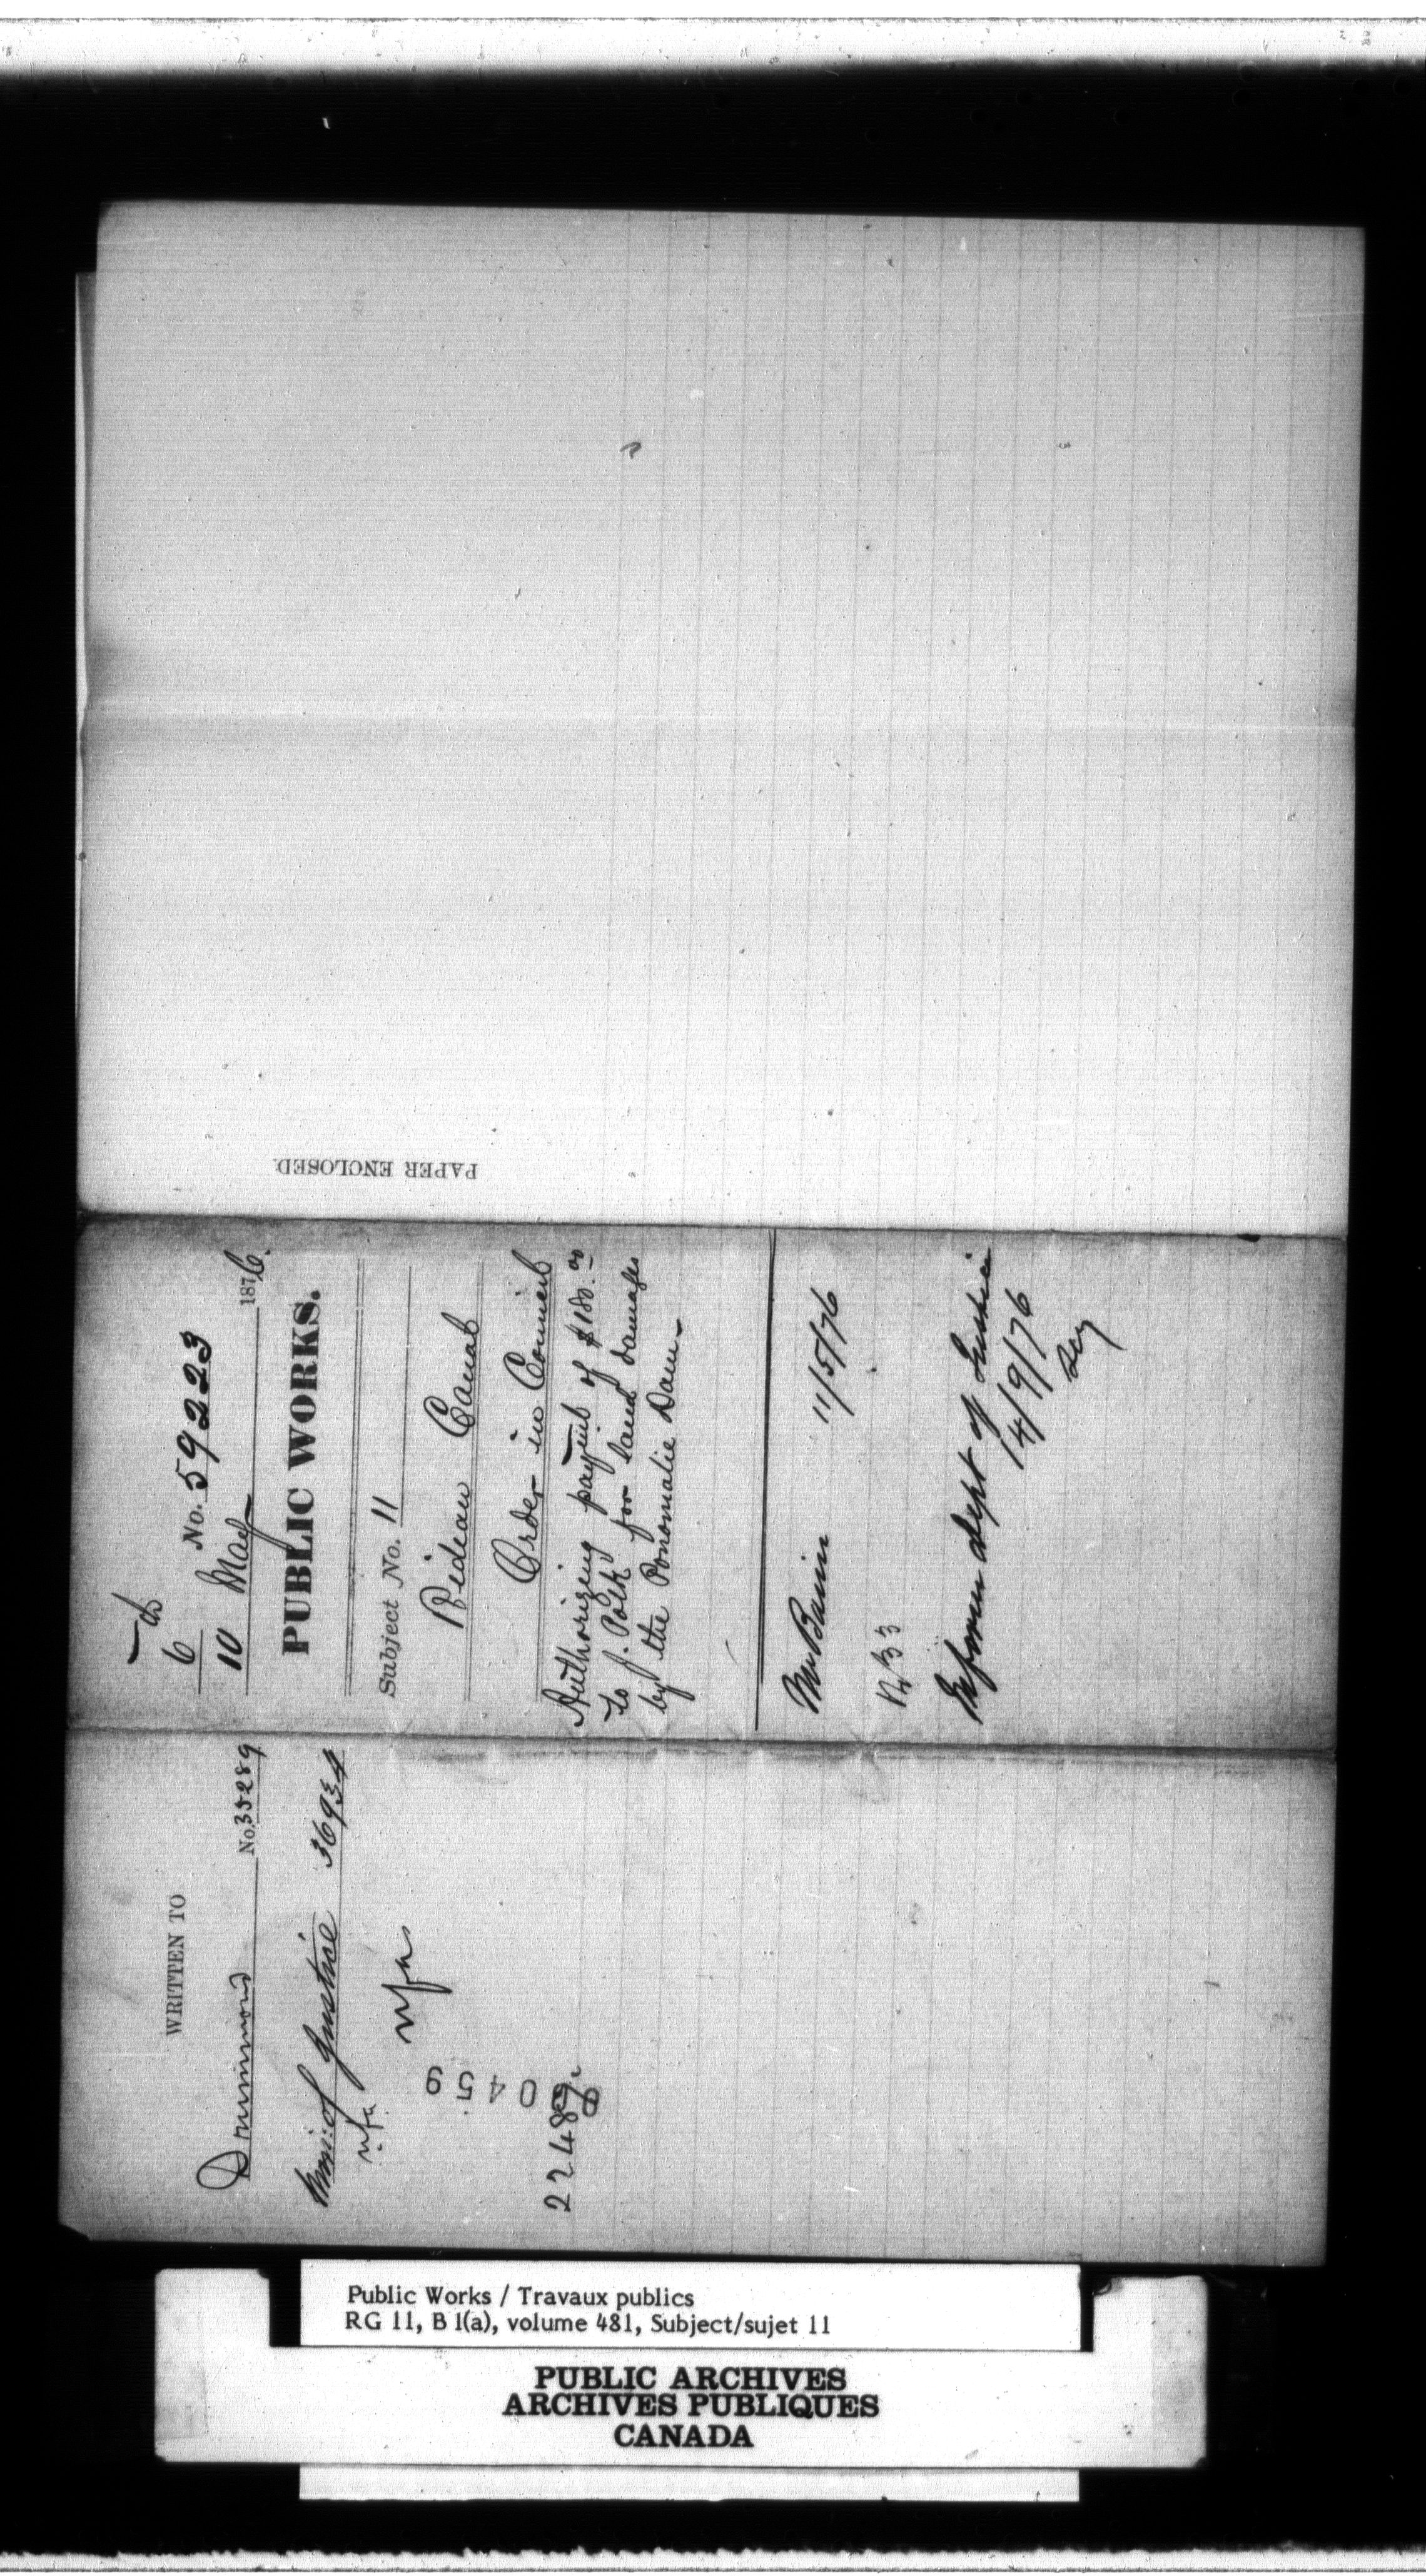 PAPER ENCLOSED.
6
No. 59223
10 May 1876.
PUBLIC WORKS.
Subject No. 11
Rideau Canal
Order in Council
Authorizing paymt of $180.00
to J. Polk for land damages
by the Ponomalie Dam
Mr Bain 11/5/76
Inform Dept of Justice
14/9/76
WRITTEN TO
Drummond No. 35289
Min: of Justice 36934
nfa
nfa
80459
22489
Public Works / Travaux publics
RG 11, B 1(a), volume 481, Subject/sujet 11
PUBLIC ARCHIVES
ARCHIVES PUBLIQUES
CANADA